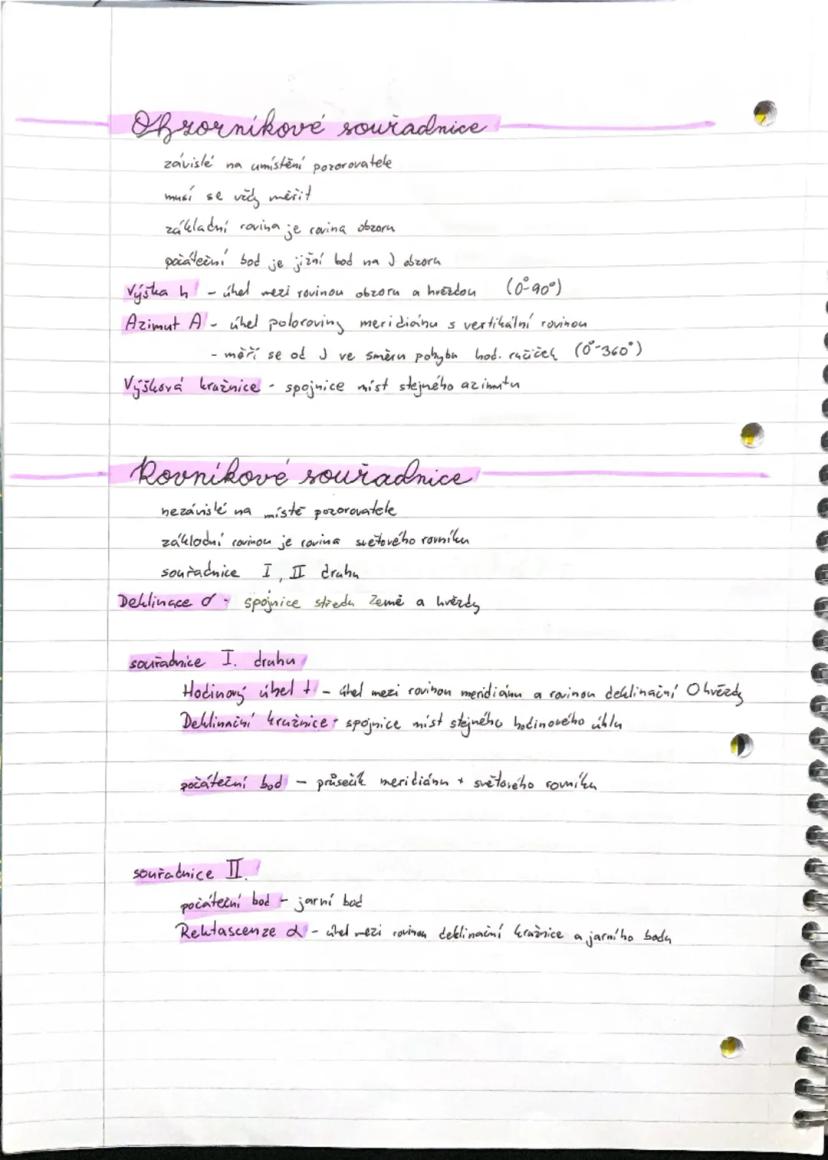 Obzorníkové souřadnice
závislé na umístění pozorovatele
musí se vždy měřit
základní rovina je rovina obzoru
počáteční bod je jižní bod na J obzoru
Výška h - úhel mezi rovinou obzoru a hvězdou (0°-90°)
Azimut A - úhel poloroviny meridiánu s vertikální rovinou
- měří se od J ve směru pohybu hod. ručiček (0°-360°)
Výšková kružnice - spojnice míst stejného azimutu
Rovníkové souřadnice
nezávislé na místě pozorovatele
základní rovinou je rovina světového rovníku
souřadnice I, II druhu
Deklinace δ - spojnice středu Země a hvězdy
souřadnice I. druhu
Hodinový úhel t - úhel mezi rovinou meridiánu a rovinou deklinační O hvězdy
Deklinační kružnice - spojnice míst stejného hodinového úhlu
počáteční bod - průsečík meridiánu + světového rovníku
souřadnice II.
počáteční bod - jarní bod
Rektascenze α - úhel mezi rovinou deklinační kružnice a jarního bodu